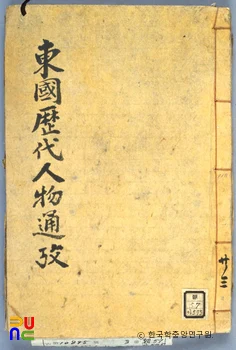 東國歷代人物通攷
卄三
© 한국학중앙연구원